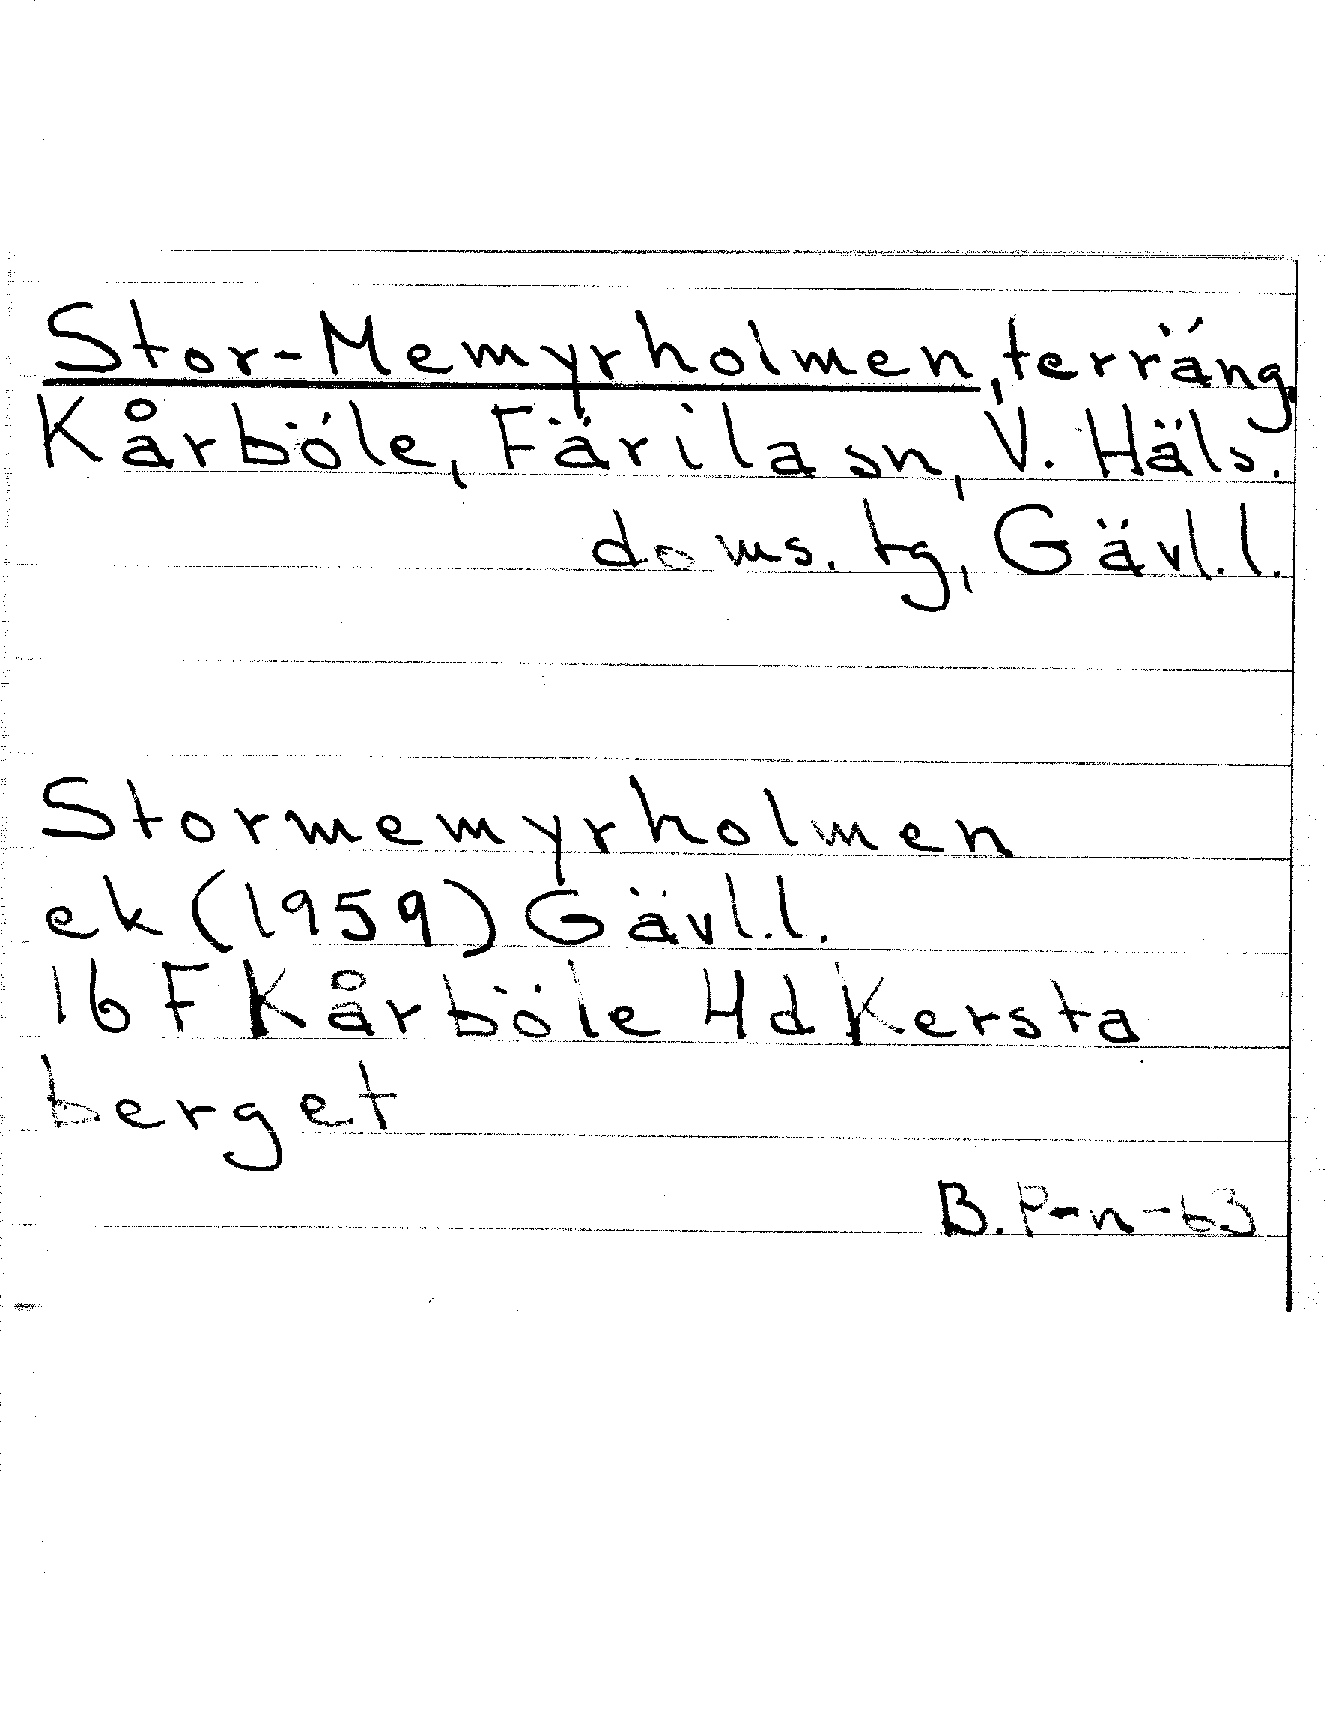 Stor-Memyrholmen, terräng,
Kårböle, Färila sn, V. Häls.
doms. tg, Gävl.l.
Stormemyrholmen
ek (1959) Gävl.l.
16 F Kårböle 4d Kersta
berget
B. P-n-63